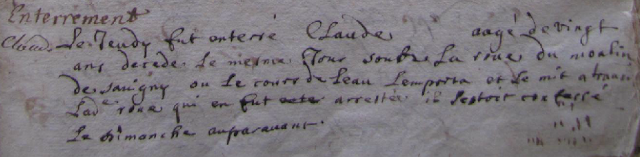 Enterrement
Claude Le Jeudy fut enterré Claude aagé de vingt
ans decede le mesme Jour soubz La roue du moulin
de savigny ou le cours de Leau Lemporta et le mit a travers
Lade roue qui en fut arrestée il sestoit confessé
Le dimanche auparavant.